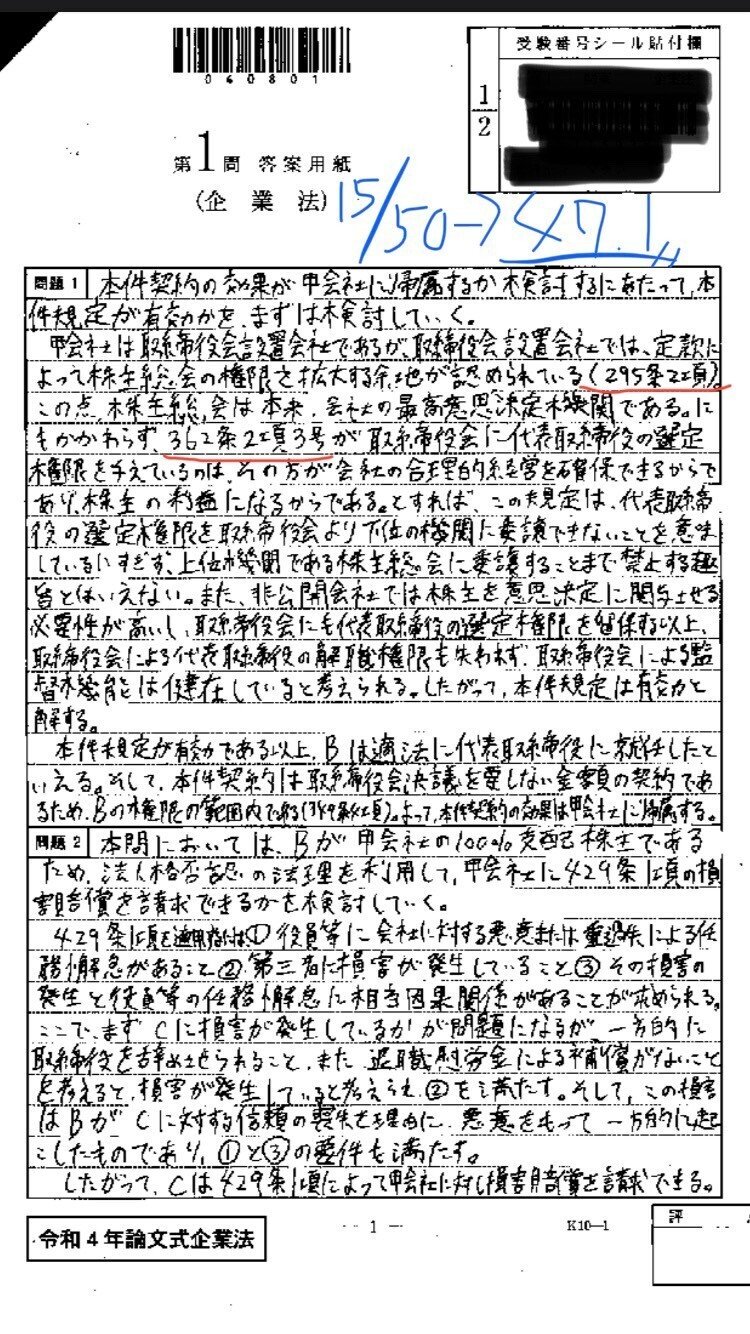 040801
受験番号シール貼付欄
1/2
第1問 答案用紙
(企業法)
15/50→47.1
問題1 本件契約の効果が甲会社に帰属するか検討するにあたって、本
件規定が有効かを、まずは検討していく。
甲会社は取締役会設置会社であるが、取締役会設置会社では、定款に
よって株主総会の権限を拡大する余地が認められている(295条2項)。
この点、株主総会は本来、会社の最高意思決定機関である。に
もかかわらず、362条2項3号が取締役会に代表取締役の選定
権限を与えているのは、その方が会社の合理的経営を確保できるからで
あり、株主の利益になるからである。とすれば、この規定は、代表取締
役の選定権限を取締役会より下位の機関に委譲できないことを意味
しているにすぎず、上位機関である株主総会に委譲することまで禁止する趣
旨とはいえない。また、非公開会社では株主を意思決定に関与させる
必要性が高いし、取締役会にも代表取締役の選定権限を留保する以上、
取締役会による代表取締役の解職権限も失われず、取締役会による監
督機能は健在していると考えられる。したがって、本件規定は有効と
解する。
本件規定が有効である以上、Bは適法に代表取締役に就任したと
いえる。そして、本件契約は取締役会決議を要しない金額の契約であ
るため、Bの権限の範囲内である(349条4項)。よって、本件契約の効果は甲会社に帰属する。
問題2 本問においては、Bが甲会社の100%支配株主である
ため、法人格否認の法理を利用して、甲会社に429条1項の損
害賠償を請求できるかを検討していく。
429条1項を適用するには①役員等に会社に対する悪意または重過失による任
務懈怠があること②第三者に損害が発生していること③その損害の
発生と役員等の任務懈怠に相当因果関係があることが求められる。
ここで、まずCに損害が発生しているかが問題になるが、一方的に
取締役を辞めさせられること、また退職慰労金による補償がないこと
を考えると、損害が発生していると考えられ②を満たす。そして、この損害
はBがCに対する信頼の喪失を理由に、悪意をもって一方的に起
こしたものであり、①と③の要件も満たす。
したがって、Cは429条1項によって甲会社に対し損害賠償を請求できる。
令和4年論文式企業法
1
K10—1
評